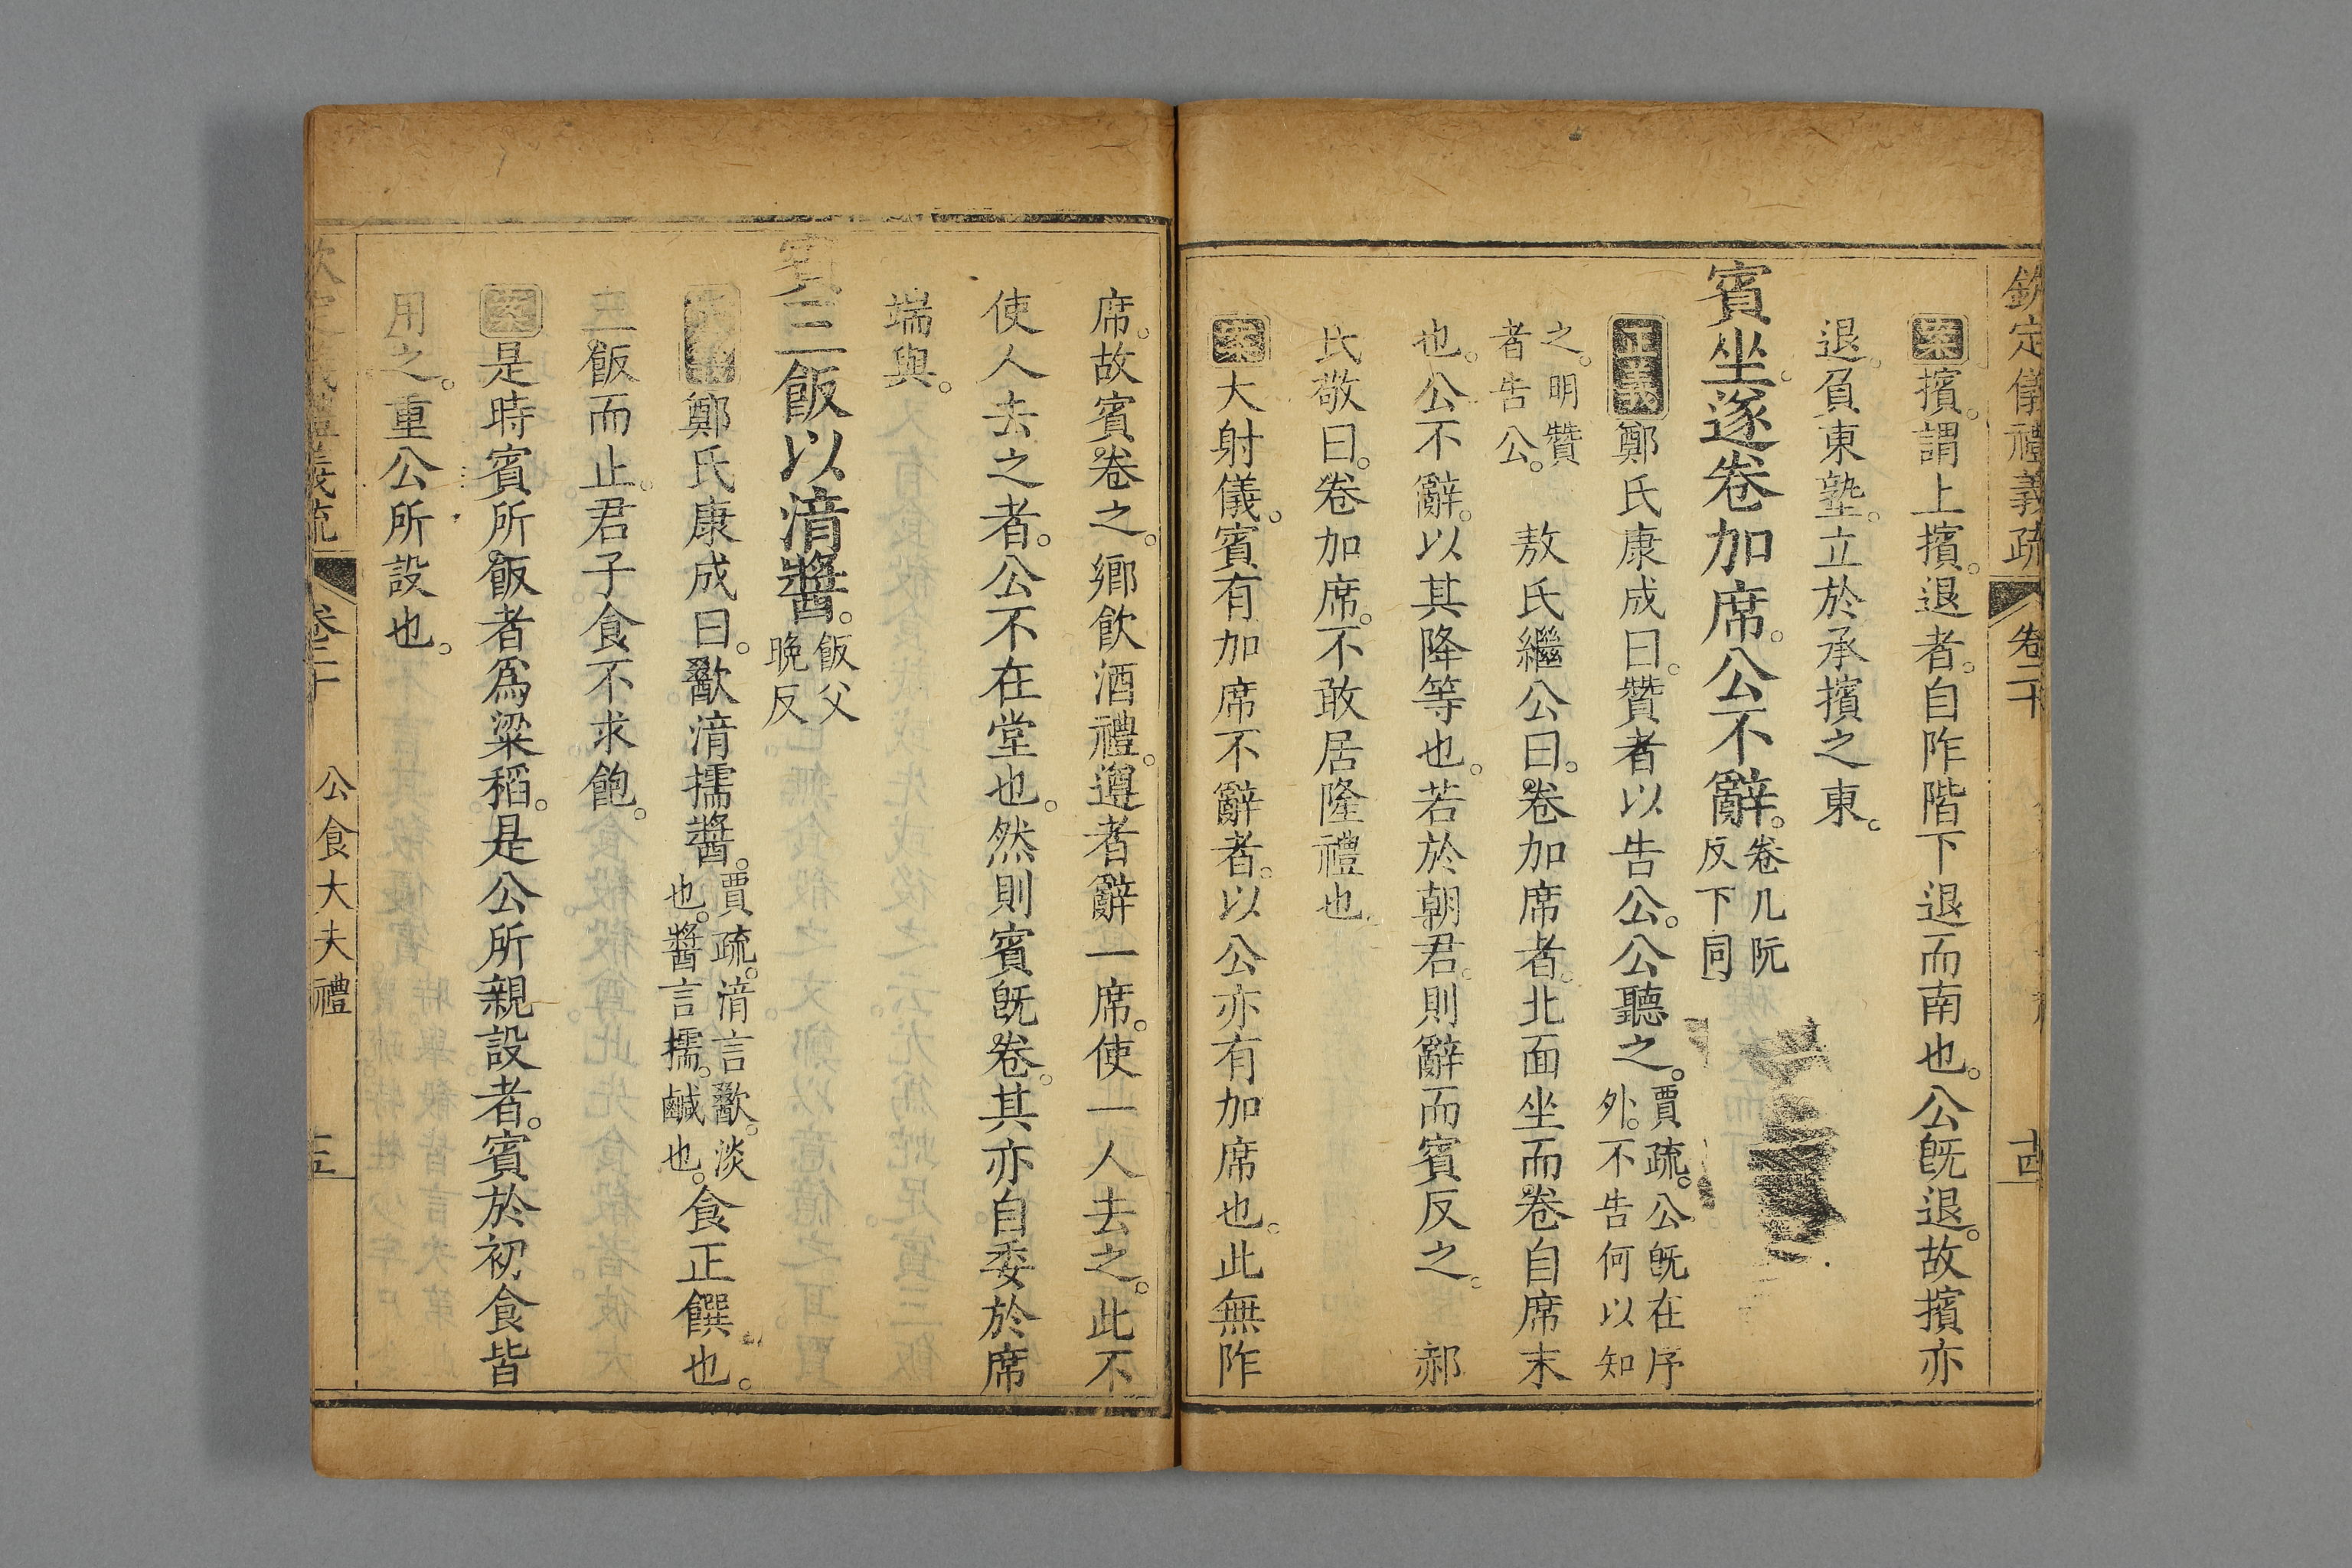 欽定儀禮義疏 卷二十 十四
案擯。謂上擯。退者。自阼階下退而南也。公旣退。故擯亦
退。負東塾。立於承擯之東。
賓坐。遂卷加席。公不辭。卷几阮
反下同
正義鄭氏康成曰。贊者以告公。公聽之。賈疏。公旣在序
外。不告何以知
之。明贊
者告公。 敖氏繼公曰。卷加席者。北面坐而卷自席末
也。公不辭。以其降等也。若於朝君。則辭而賓反之。 郝
氏敬曰。卷加席。不敢居隆禮也
案大射儀。賓有加席不辭者。以公亦有加席也。此無阼
席。故賓卷之。鄉飲酒禮。遵者辭一席。使一人去之。此不
使人去之者。公不在堂也。然則賓旣卷。其亦自委於席
端與。
賓三飯以湇醬。飯父
晚反
鄭氏康成曰。歠湇擩醬。賈疏。湇言歠。淡
也。醬言擩。鹹也。食正饌也。
三飯而止。君子食不求飽。
案是時賓所飯者爲粱稻。是公所親設者。賓於初食皆
用之。重公所設也。
卷二十 公食大夫禮 十五